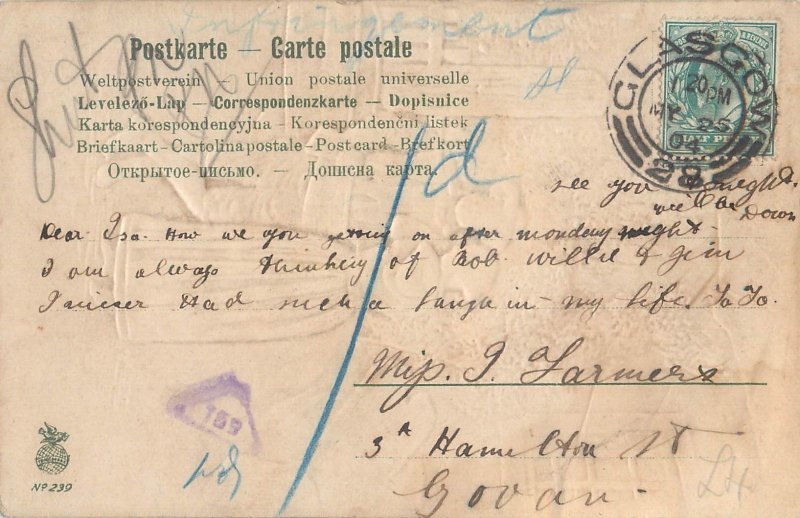 Infringement
Postkarte — Carte postale
Weltpostverein — Union postale universelle
Levelező-Lap — Correspondenzkarte — Dopisnice
Karta korespondencyjna — Korespondenční listek
Briefkaart — Cartolina postale — Post card — Brefkort
Открытое-письмо. — Дописна карта.
GLASGOW
MY 25
04
HALF PE
1d
see you
will be
Down
Dear Isa. How are you getting on after monday night.
I am always thinking of Bob. Willie & Jim
I never Had such a in my life. Ta Ta.
Miss. I. Farmer
3A Hamilton St
Govan
159
1d
NO 239